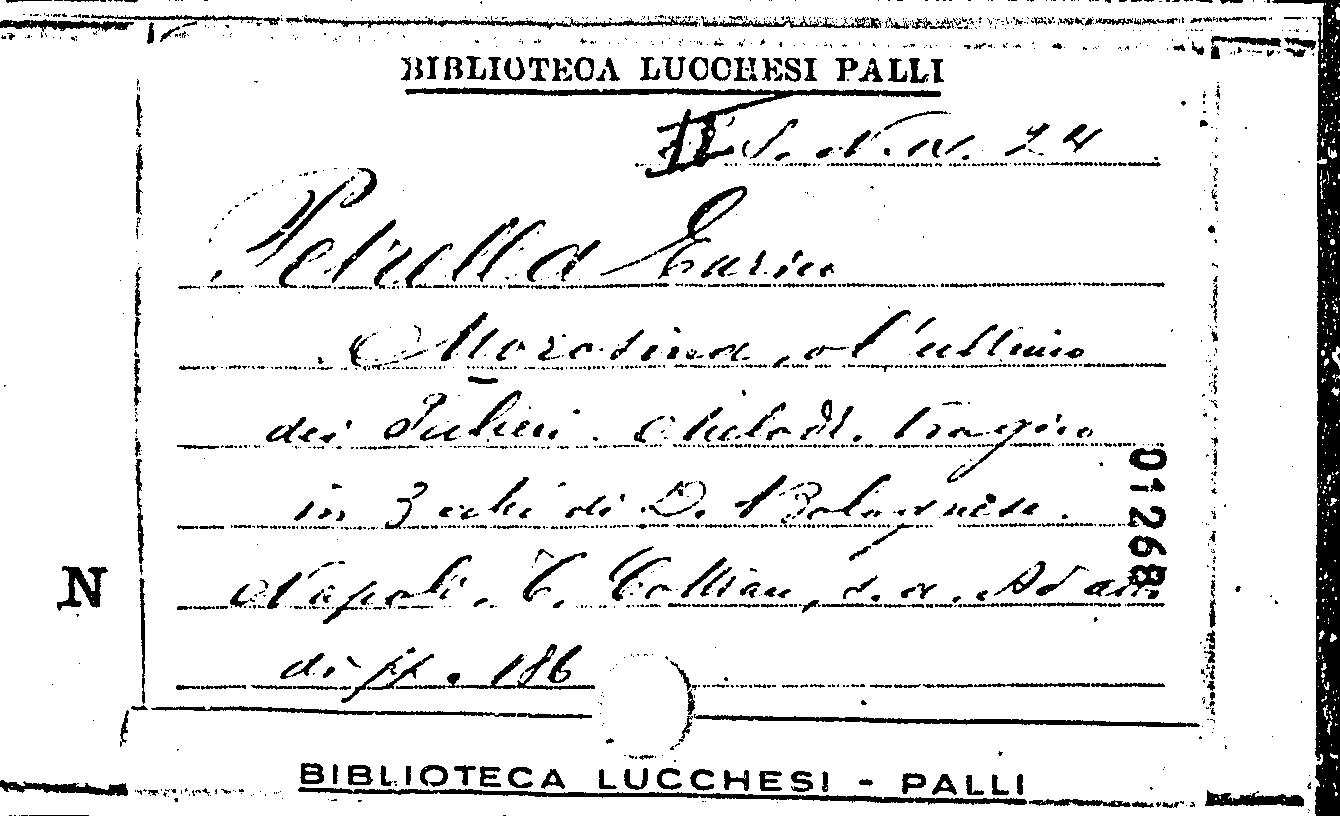 BIBLIOTECA LUCCHESI PALLI
S. N. IV. 24
Petrella Enrico
Morosina, o l'ultimo
dei Falieri. Melodr. tragico
in 3 atti di D. Bolognese.
Napoli, T. Cottrau, s. a. Ad
di pp. 186
01268
N
BIBLIOTECA LUCCHESI - PALLI